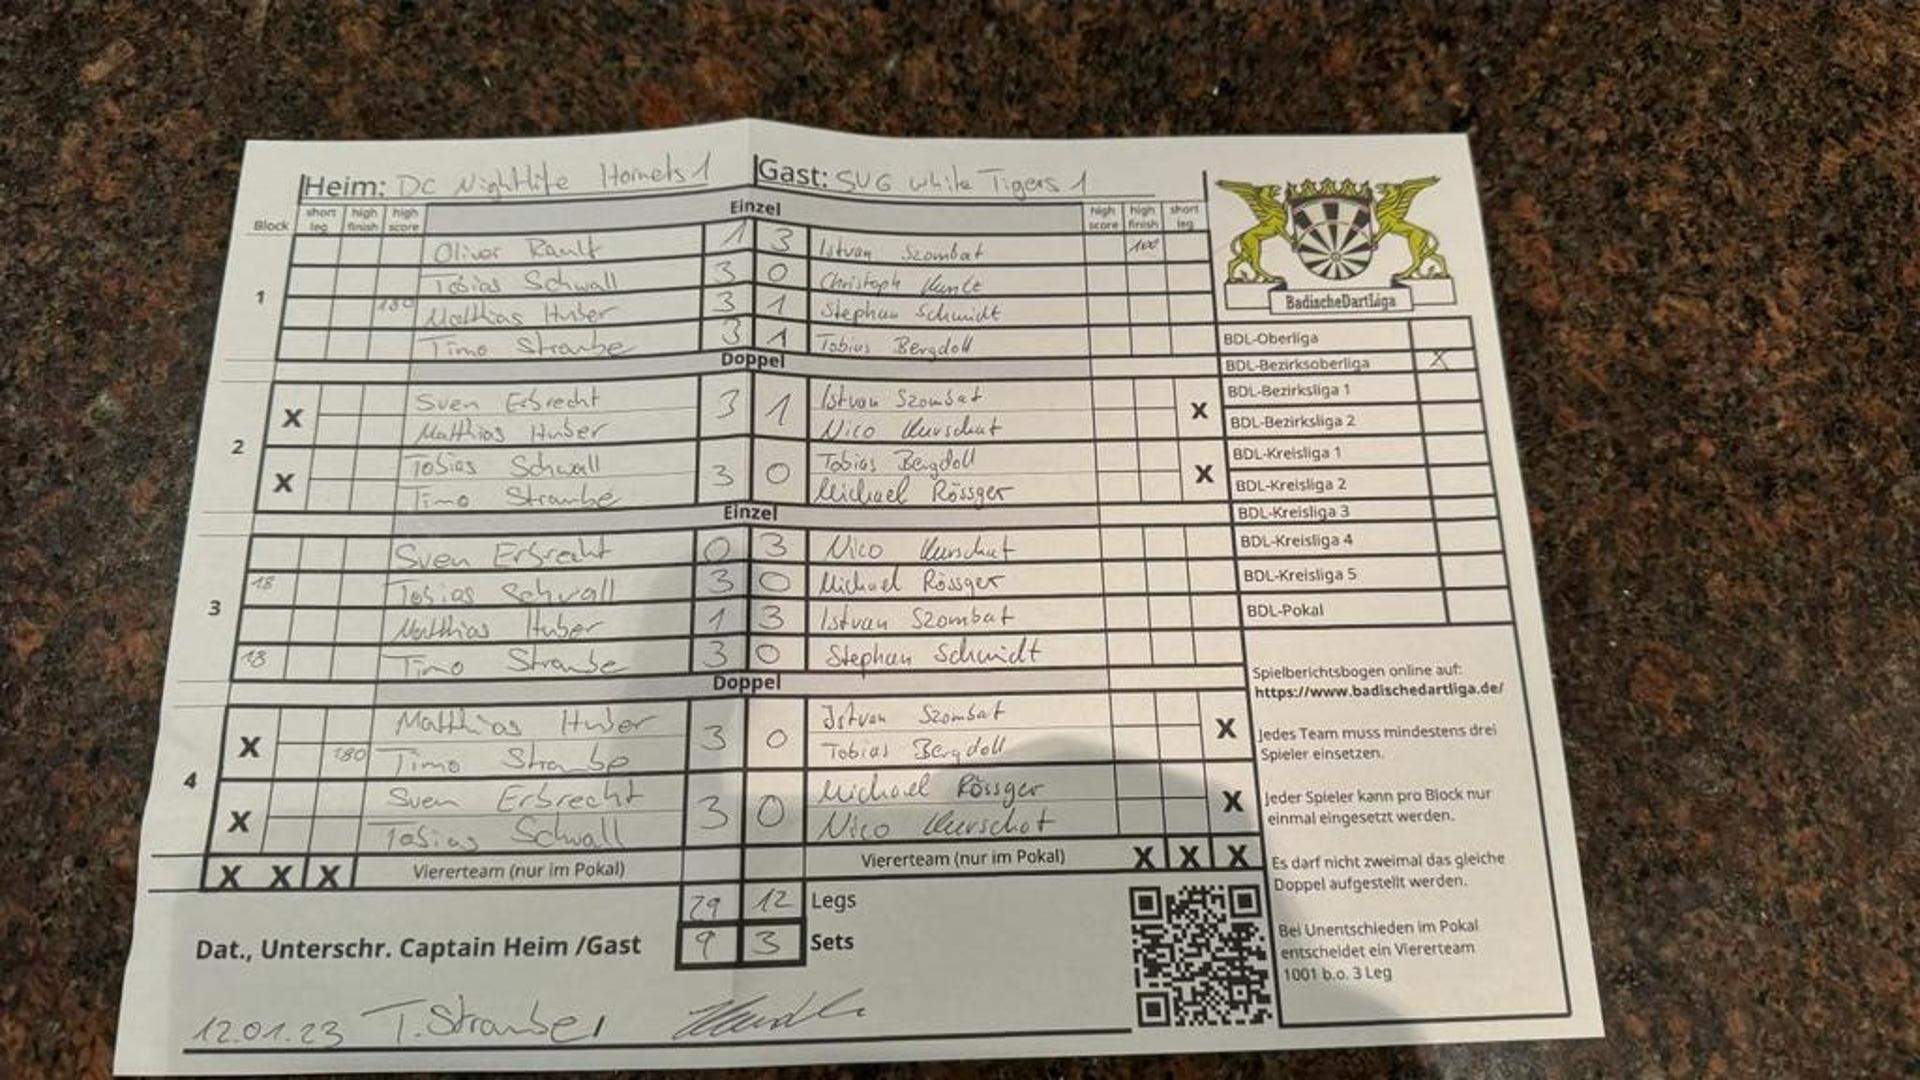 Heim: DC Nightlife Hornets 1 Gast: SVG white Tigers 1
Block short leg high finish high score Einzel high score high finish short leg
Oliver Rault 1 3 Istvan Szombat 100
Tobias Schwall 3 0 Christoph
1 180 Matthias Huber 3 1 Stephan Schmidt
Timo Straube 3 1 Tobias Bergdoll
Doppel
X Sven Erbrecht 3 1 Istvan Szombat X
Matthias Huber Nico
2
X Tobias Schwall 3 0 Tobias Bergdoll X
Timo Straube Michael Rössger
Einzel
Sven Erbrecht 0 3 Nico
18 Tobias Schwall 3 0 Michael Rössger
3
Matthias Huber 1 3 Istvan Szombat
18 Timo Straube 3 0 Stephan Schmidt
Doppel
X Matthias Huber 3 0 Istvan Szombat X
180 Timo Straube Tobias Bergdoll
4
X Sven Erbrecht 3 0 Michael Rössger X
Tobias Schwall Nico
X X X Viererteam (nur im Pokal) Viererteam (nur im Pokal) X X X
29 12 Legs
9 3 Sets
Dat., Unterschr. Captain Heim /Gast
12.01.23 T. Straube
BadischeDartLiga
BDL-Oberliga
BDL-Bezirksoberliga X
BDL-Bezirksliga 1
BDL-Bezirksliga 2
BDL-Kreisliga 1
BDL-Kreisliga 2
BDL-Kreisliga 3
BDL-Kreisliga 4
BDL-Kreisliga 5
BDL-Pokal
Spielberichtsbogen online auf:
https://www.badischedartliga.de/
Jedes Team muss mindestens drei
Spieler einsetzen.
Jeder Spieler kann pro Block nur
einmal eingesetzt werden.
Es darf nicht zweimal das gleiche
Doppel aufgestellt werden.
Bei Unentschieden im Pokal
entscheidet ein Viererteam
1001 b.o. 3 Leg